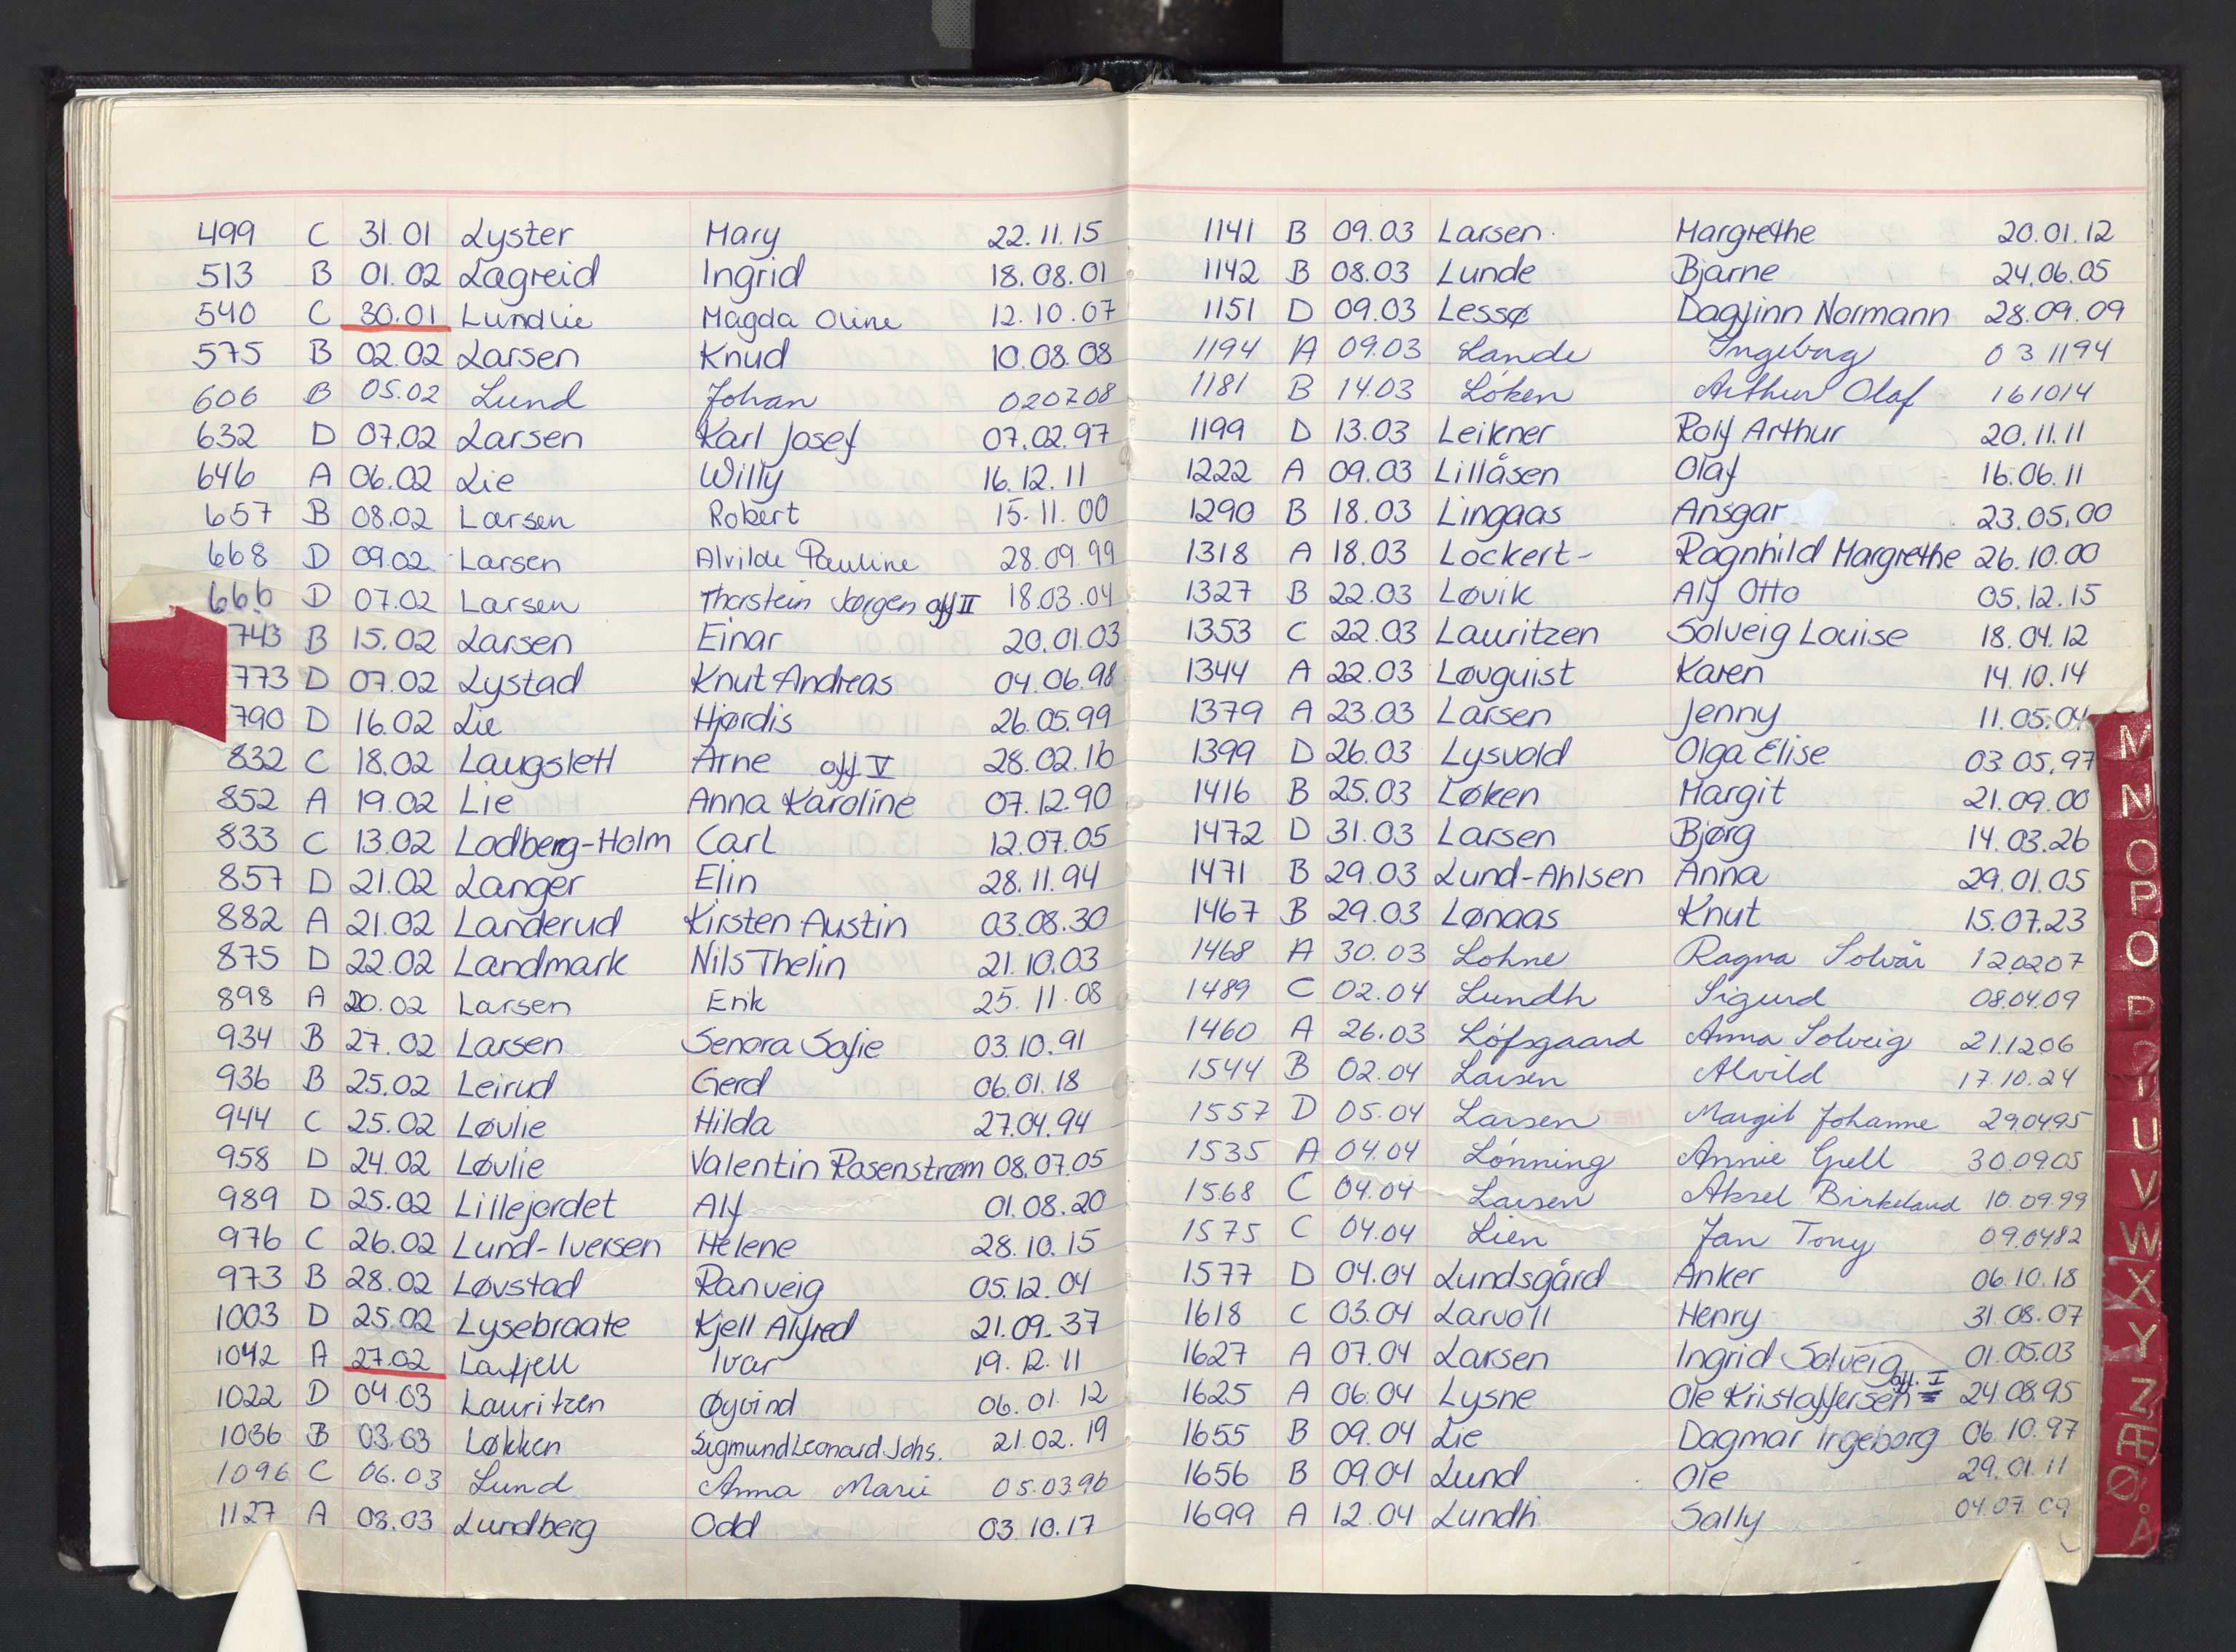 499 C 31.01 Lyster Mary 22.11.15
513 B 01.02 Lægreid Ingrid 18.08.01
540 C 30.01 Lundlie Magda Oline 12.10.07
575 B 02.02 Larsen Knud 10.08.08
606 B 05.02 Lund Johan 020708
632 D 07.02 Larsen Karl Josef 07.02.97
646 A 06.02 Lie Willy 16.12.11
657 B 08.02 Larsen Robert 15.11.00
668 D 09.02 Larsen Alvilde Pauline 28.09.99
666 D 07.02 Larsen Thorstein Jørgen aff II 18.03.04
743 B 15.02 Larsen Einar 20.01.03
773 D 07.02 Lystad Knut Andreas 04.06.98
790 D 16.02 Lie Hjørdis 26.05.99
832 C 18.02 Laugslett Arne aff V 28.02.16
852 A 19.02 Lie Anna Karoline 07.12.90
833 C 13.02 Lodberg-Holm Carl 12.07.05
857 D 21.02 Langer Elin 28.11.94
882 A 21.02 Landerud Kirsten Austin 03.08.30
875 D 22.02 Landmark Nils Thelin 21.10.03
898 A 20.02 Larsen Erik 25.11.08
934 B 27.02 Larsen Senora Sofie 03.10.91
936 B 25.02 Leirud Gerd 06.01.18
944 C 25.02 Løvlie Hilda 27.04.94
958 D 24.02 Løvlie Valentin Rosenstrøm 08.07.05
989 D 25.02 Lillejordet Alf 01.08.20
976 C 26.02 Lund-Iversen Helene 28.10.15
973 B 28.02 Løvstad Ranveig 05.12.04
1003 D 25.02 Lysebraate Kjell Alfred 21.09.37
1042 A 27.02 Laufjell Ivar 19.12.11
1022 D 04.03 Lauritzen Øyvind 06.01.12
1036 B 03.03 Løkken Sigmund Leonard Johs. 21.02.19
1096 C 06.03 Lund Anna Marie 05.0396
1127 A 08.03 Lundberg Odd 03.10.17
1141 B 09.03 Larsen Margrethe 20.01.12
1142 B 08.03 Lunde Bjarne 24.06.05
1151 D 09.03 Lessø Dagfinn Normann 28.09.09
1194 A 09.03 Lande Ingeborg 031194
1181 B 14.03 Løken Arthur Olaf 161014
1199 D 13.03 Leikner Rolf Arthur 20.11.11
1222 A 09.03 Lillåsen Olaf 16.06.11
1290 B 18.03 Lingaas Ansgar 23.05.00
1318 A 18.03 Lockert- Ragnhild Margrethe 26.10.00
1327 B 22.03 Løvik Alf Otto 05.12.15
1353 C 22.03 Lauritzen Solveig Louise 18.04.12
1344 A 22.03 Løvquist Karen 14.10.14
1379 A 23.03 Larsen Jenny 11.05.04
1399 D 26.03 Lysvold Olga Elise 03.05.97
1416 B 25.03 Løken Margit 21.09.00
1472 D 31.03 Larsen Bjørg 14.03.26
1471 B 29.03 Lund-Ahlsen Anna 29.01.05
1467 B 29.03 Lønaas Knut 15.07.23
1468 A 30.03 Lohne Ragna Solvår 120207
1489 C 02.04 Lundh Sigurd 08.04.09
1460 A 26.03 Løfsgaard Anna Solveig 21.1206
1544 B 02.04 Larsen Alvild 17.10.24
1557 D 05.04 Larsen Margit Johanne 290495
1535 A 04.04 Lønning Annie Grell 300905
1568 C 04.04 Larsen Aksel Birkeland 10.09.99
1575 C 04.04 Lien Jan Tony 09.0482
1577 D 04.04 Lundsgård Anker 06.10.18
1618 C 03.04 Larvoll Henry 31.08.07
1627 A 07.04 Larsen Ingrid Solveig 01.05.03
1625 A 06.04 Lysne Ole Kristoffersen aff. I 24.08.95
1655 B 09.04 Lie Dagmar Ingeborg 06.10.97
1656 B 09.04 Lund Ole 29.01.11
1699 A 12.04 Lundh Sally 04.07.09
M
N
O
P
Q
R
U
V
W
X
Y
Z
Æ
Ø
Å